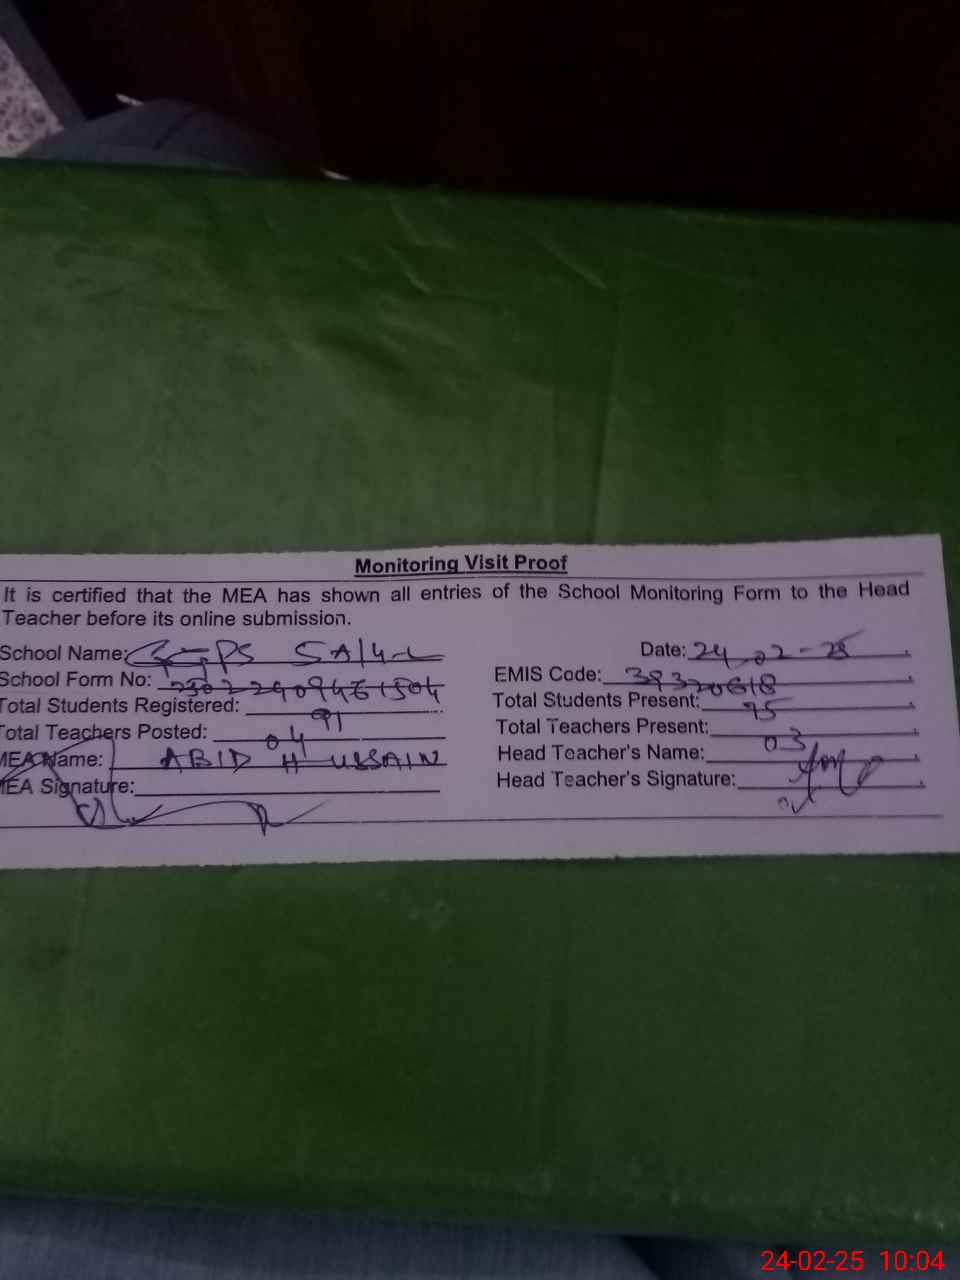 Monitoring Visit Proof
It is certified that the MEA has shown all entries of the School Monitoring Form to the Head
Teacher before its online submission.
School Name: GGPS 5A/4-L Date: 24-02-25
School Form No: EMIS Code: 39320618
Total Students Registered: 91 Total Students Present: 75
Total Teachers Posted: 04 Total Teachers Present: 03
MEA Name: ABID HUSSAIN Head Teacher's Name:
MEA Signature: Head Teacher's Signature:
24-02-25 10:04